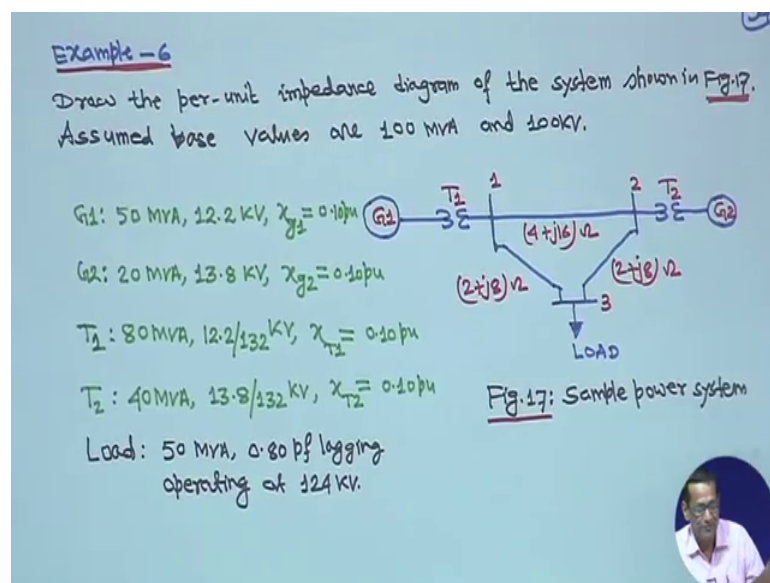 Example-6
Draw the per-unit impedance diagram of the system shown in Fig.17.
Assumed base values are 100 MVA and 100KV.
G1: 50 MVA, 12.2 KV, xg1 = 0.10pu
G2: 20 MVA, 13.8 KV, xg2 = 0.10pu
T1: 80MVA, 12.2/132 KV, xT1 = 0.10pu
T2: 40MVA, 13.8/132 KV, xT2 = 0.10pu
Load: 50 MVA, 0.80 pf lagging
operating at 124 KV.
G1
T1
1
2
T2
G2
(4+j16)Ω
(2+j8)Ω
(2+j8)Ω
3
LOAD
Fig.17: Sample power system